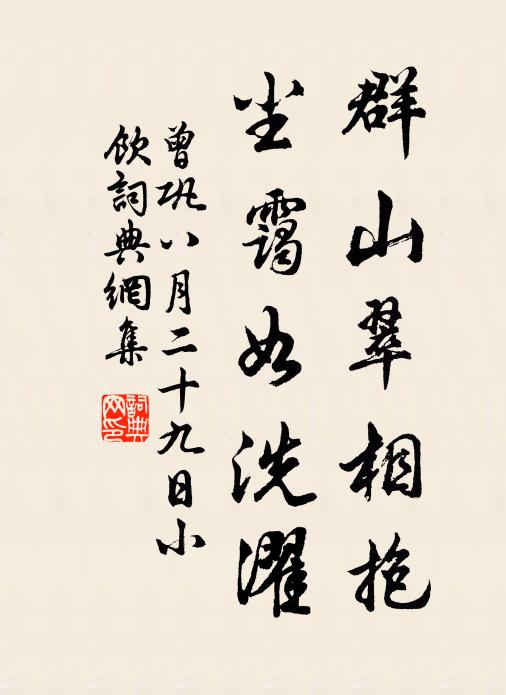 群山翠相抱
坐靄如洗濯
曾巩八月二十九日小
飲詞典網集
詞典
网印